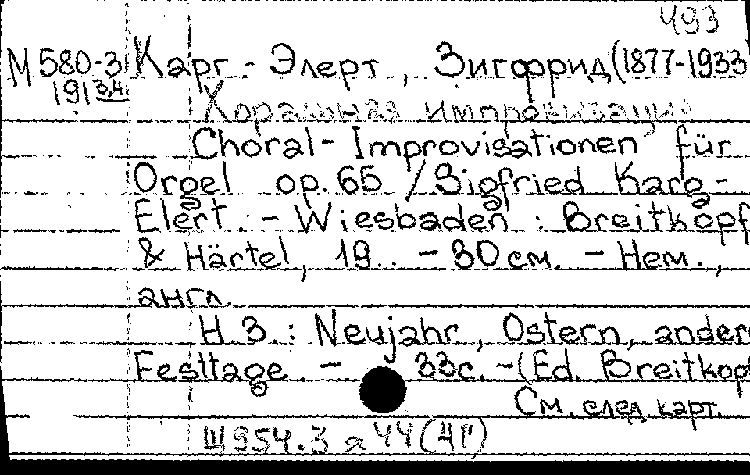 493
М 580-3 Карг-Элерт, Зигфрид (1877-1933
191
Хоральная импровизация
Choral-Improvisationen für
Orgel op. 65 / Sigfried Karg-
Elert. - Wiesbaden : Breitkopf
& Härtel, 19.. - 30 см. - Нем.,
англ.
Н. 3. : Neujahr, Ostern, ander
Festtage. - 33 с. - (Ed. Breitkop
См. след. карт.
Щ954.3 я 44(4Г)